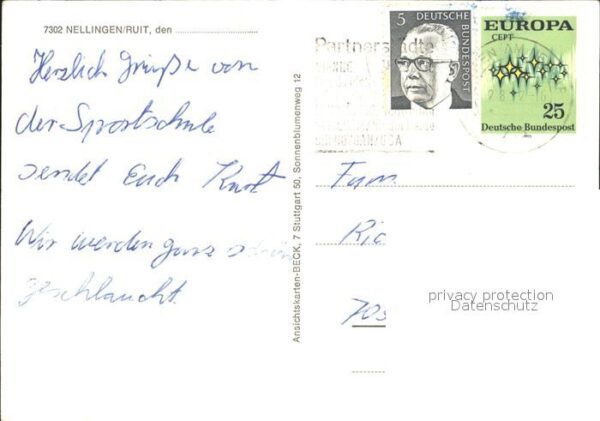 7302 NELLINGEN/RUIT, den
Herzlich Grüße von
der Sportschule
sendet Euch Kurt
Wir werden ganz schön
geschlaucht.
Ansichtskarten-BECK, 7 Stuttgart 50, Sonnenblumenweg 12
5
DEUTSCHE
BUNDESPOST
EUROPA
CEPT
25
Deutsche Bundespost
Partnerstädte
Fam
Ric
70
privacy protection
Datenschutz